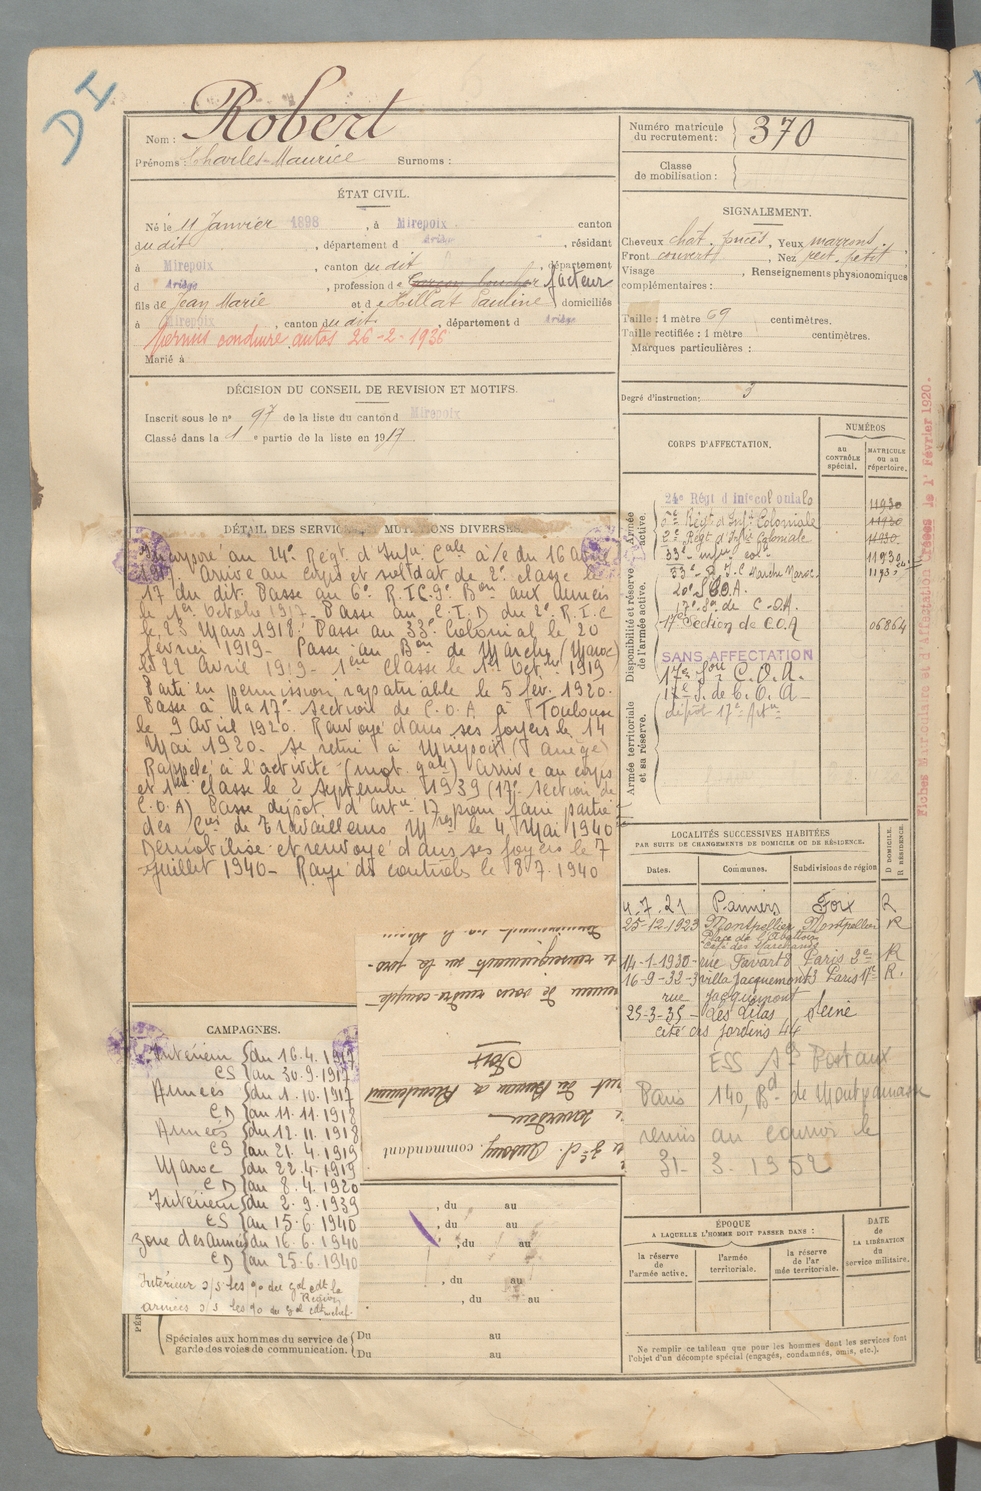 DI
Nom : Robert
Prénoms : Charles-Maurice Surnoms :
ÉTAT CIVIL.
Né le 11 Janvier 1898, à Mirepoix canton
du dit, département d Ariège, résidant
à Mirepoix, canton du dit, département
d Ariège, profession de Garçon boucher facteur
fils de Jean Marie et de Hillat Pauline domiciliés
à Mirepoix, canton du dit, département d Ariège
Permis conduire autos 26-2-1936
Marié à
DÉCISION DU CONSEIL DE REVISION ET MOTIFS.
Inscrit sous le n° 97 de la liste du canton d Mirepoix
Classé dans la 1 e partie de la liste en 1917
DÉTAIL DES SERVICES ET MUTATIONS DIVERSES.
Incorporé au 24e Régt d'Infie Cale à/c du 16 avril
1917. Arrivé au corps et soldat de 2e classe le
17 du dit. Passe au 6e R.I.C. 9e Bon aux armées
le 1er Octobre 1917 - Passe au C.I.D du 2e R.I.C
le 23 Mars 1918. Passe au 33e Colonial le 20
février 1919 - Passe au Bon de Marche (Maroc)
le 22 Avril 1919 - 1ère Classe le 1er Octbre 1919
Parti en permission rapatriable le 5 fév. 1920.
Passe à la 17e Section de C.O.A à Toulouse
le 9 Avril 1920. Renvoyé dans ses foyers le 14
Mai 1920. Se retire à Mirepoix (Ariège)
Rappelé à l'activité (mob. gale) Arrivé au corps
et 1ère classe le 2 Septembre 1939 (17e Section de
C.O.A) Passe dépôt d'Artie 17 pour faire partie
des Cies de Travailleurs Mres le 4 Mai 1940
Démobilisé et renvoyé dans ses foyers le 7
juillet 1940 - Rayé des contrôles le 8.7.1940
renseignements sur la
rendre compte
Fort
du Bureau de Recrutement
commandant
CAMPAGNES.
Intérieur du 16.4.1917
CS au 30.9.1917
Armées du 1.10.1917
CD au 11.11.1918
Armées du 12.11.1918
CS au 21.4.1919
Maroc du 22.4.1919
CD au 8.4.1920
Intérieur du 2.9.1939
CS au 15.6.1940
Zone des armées du 16.6.1940
CD au 25.6.1940
Intérieur s/s les
Région
armées s/s les
, du au
, du au
, du au
, du au
, du au
Spéciales aux hommes du service de
garde des voies de communication.
Du au
Du au
Numéro matricule
du recrutement : 370
Classe
de mobilisation :
SIGNALEMENT.
Cheveux chat. foncés, Yeux marrons
Front couvert, Nez rect. petit
Visage , Renseignements physionomiques
complémentaires :
Taille : 1 mètre 69 centimètres.
Taille rectifiée : 1 mètre centimètres.
Marques particulières :
Degré d'instruction : 3
CORPS D'AFFECTATION.
NUMÉROS
au
CONTRÔLE
spécial.
MATRICULE
ou au
répertoire.
Armée
active.
Disponibilité et réserve
de l'armée active.
Armée territoriale
et sa réserve.
24e Régt d'Infie coloniale 11930
Régt d'Infie Coloniale 11930
2e Régt d'Infie Coloniale 11930
33e infie cole 11930
33e R.I.C Marche Maroc.
20e S.C.O.A.
17e Son de C.O.A.
17e Section de C.O.A 06864
SANS AFFECTATION
17e Son C.O.A.
17e S. de C.O.A -
dépôt 17e Artie
Fiches Matriculaire et d'Affectation créées le 1er Février 1920.
LOCALITÉS SUCCESSIVES HABITÉES
PAR SUITE DE CHANGEMENTS DE DOMICILE OU DE RÉSIDENCE.
D DOMICILE.
R RÉSIDENCE.
Dates. Communes. Subdivisions de région
4.7.21 Pamiers Foix R
25-12-1923 Montpellier Montpellier R
Place de l'Abattoir
14-1-1930 - rue Favart 8 Paris 2e R
16-9-32 - 3 villa Jacquemont 3 Paris 17e R.
rue Jacquemont
25-3-35 - Les Lilas, Seine
Cité des Jardins 44
ESS Postaux
Paris 140, Bd de Montparnasse
remis au courroi le
31- 3. 1952
ÉPOQUE
A LAQUELLE L'HOMME DOIT PASSER DANS :
la réserve
de l'armée active.
l'armée
territoriale.
la réserve
de l'ar
mée territoriale.
DATE
de
LA LIBÉRATION
du
service militaire.
Ne remplir ce tableau que pour les hommes dont les services font
l'objet d'un décompte spécial (engagés, condamnés, omis, etc.).